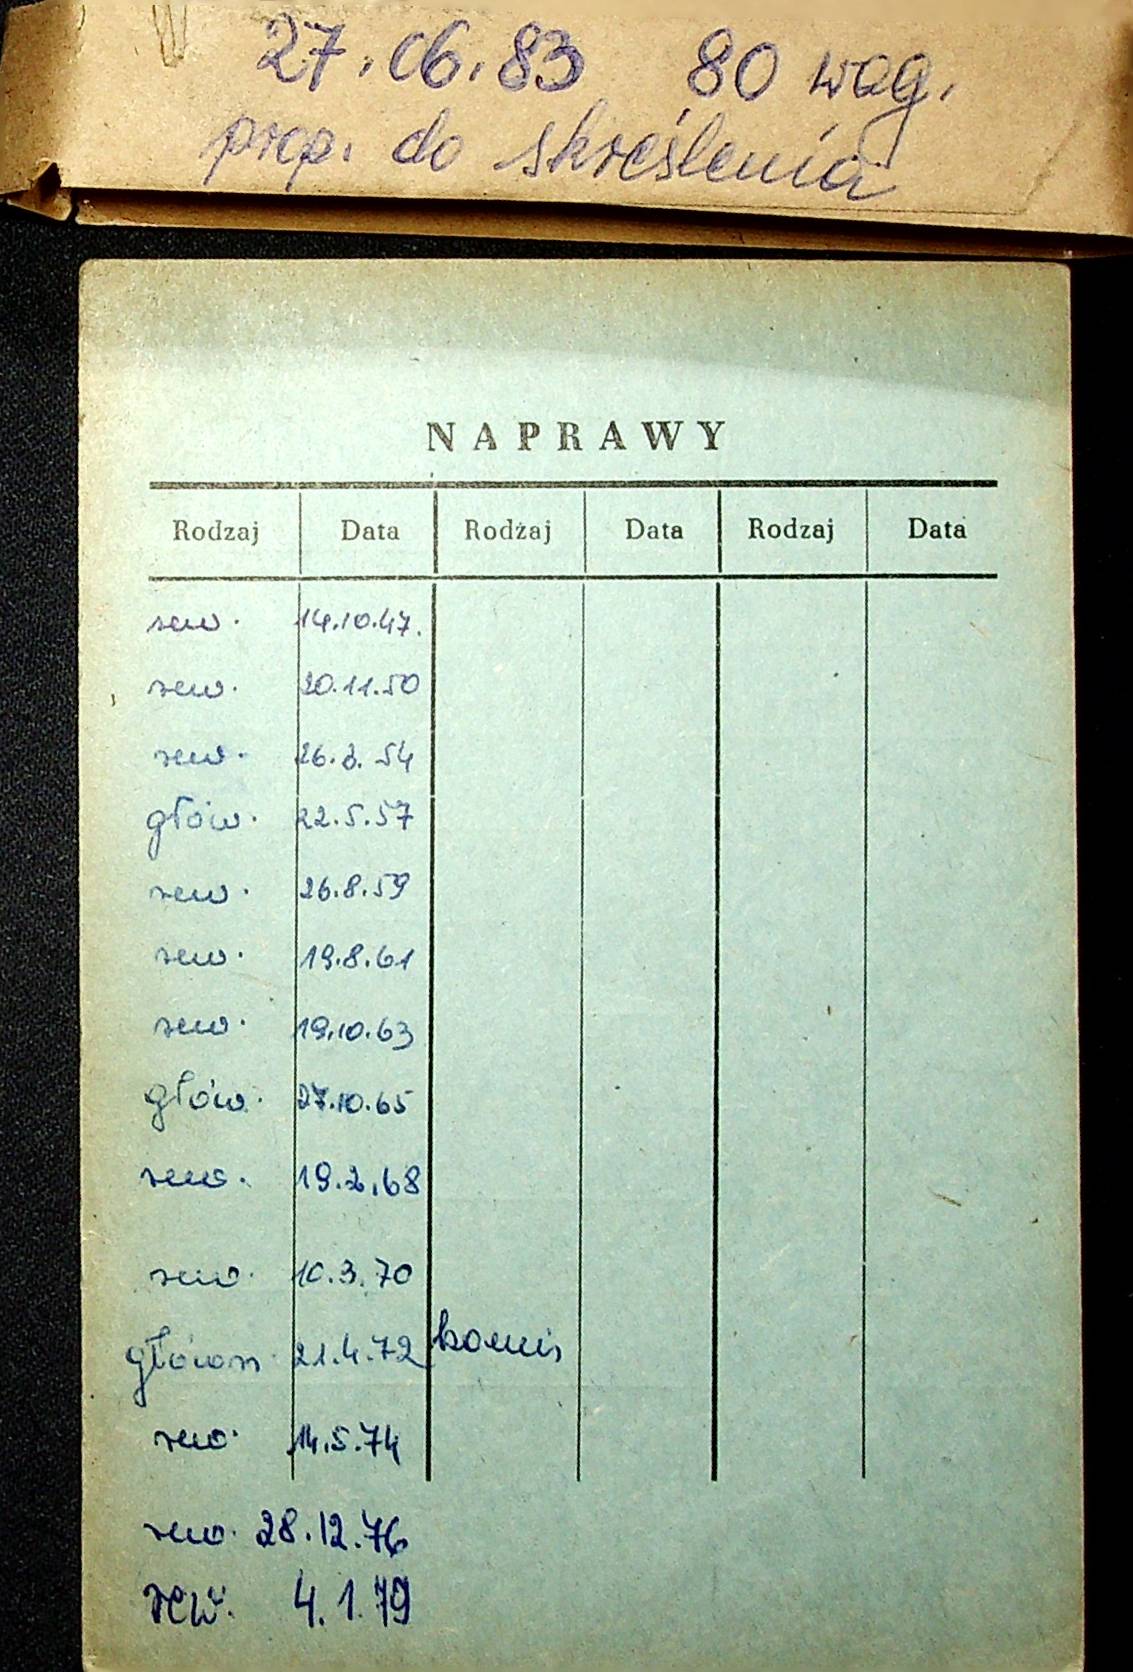 27.06.83 80 wag.
prop. do skreślenia
NAPRAWY
Rodzaj Data Rodzaj Data Rodzaj Data
rew. 14.10.47.
rew. 20.11.50
rew. 26.3.54
głów. 22.5.57
rew. 26.8.59
rew. 19.8.61
rew. 19.10.63
głów. 27.10.65
rew. 19.2.68
rew. 10.3.70
główn. 21.4.72
rew. 14.5.74
rew. 28.12.76
rew. 4.1.79